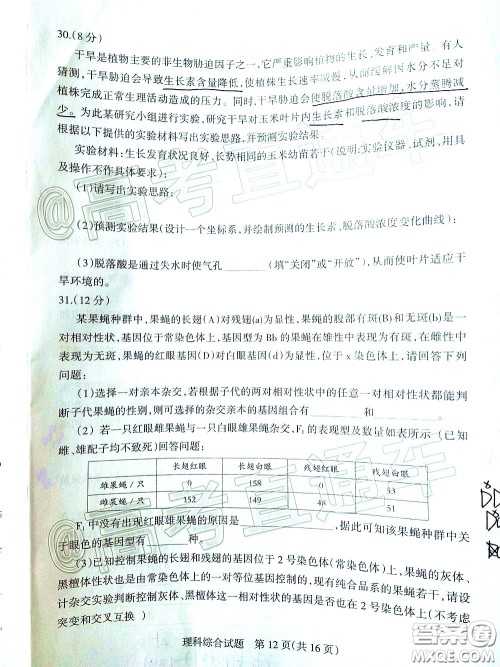 30.(8分)
干旱是植物主要的非生物胁迫因子之一,它严重影响植物的生长、发育和繁殖。有人
猜测,干旱胁迫会导致生长素含量降低,使植株生长速率减缓,从而缓解因水分不足对
植株完成正常生理活动造成的压力。同时,干旱胁迫会使脱落酸含量增加,水分蒸腾减
少。为此某研究小组进行实验,研究干旱对玉米叶片内生长素和脱落酸浓度的影响,请
根据以下提供的实验材料写出实验思路,并预测实验结果。
实验材料:生长发育状况良好,长势相同的玉米幼苗若干(说明:实验仪器、试剂、用具
及操作不作具体要求);
(1)请写出实验思路:
(2)预测实验结果(设计一个坐标系,并绘制预测的生长素、脱落酸浓度变化曲线):
(3)脱落酸是通过失水时使气孔______(填“关闭”或“开放”),从而使叶片适应干
旱环境的。
31.(12分)
某果蝇种群中,果蝇的长翅(A)对残翅(a)为显性,果蝇的腹部有斑(B)和无斑(b)是一
对相对性状,基因位于常染色体上,基因型为 Bb 的果蝇在雄性中表现为有斑,在雌性
中表现为无斑,果蝇的红眼基因(D)对白眼基因(d)为显性,位于x染色体上,请回答下列
问题:
(1)选择一对亲本杂交,若根据子代的两对相对性状中的任意一对相对性状都能判
断子代果蝇的性别,则可选择的杂交亲本的基因组合有______和______。
(2)若一只红眼雌果蝇与一只白眼雄果蝇杂交,F₁的表现型及数量如表所示(已知
雌、雄配子均不致死)回答问题:
长翅红眼 长翅白眼 残翅红眼 残翅白眼
雄果蝇/只 0 158 0 53
雌果蝇/只 152 149 48 51
F₁中没有出现红眼雄果蝇的原因是______,据此可知该果蝇种群中关
于眼色的基因型有______种。
(3)已知控制果蝇的长翅和残翅的基因位于2号染色体(常染色体)上,果蝇的灰体、
黑檀体性状也是由常染色体上的一对等位基因控制的,现有各种纯种果蝇若干,请设
计杂交实验判断控制果蝇灰体、黑檀体这一相对性状的基因是否也位于2号染色体上(不考虑
突变和交叉互换)
理科综合试题 第12页(共16页)
@高考直通车
答案圈